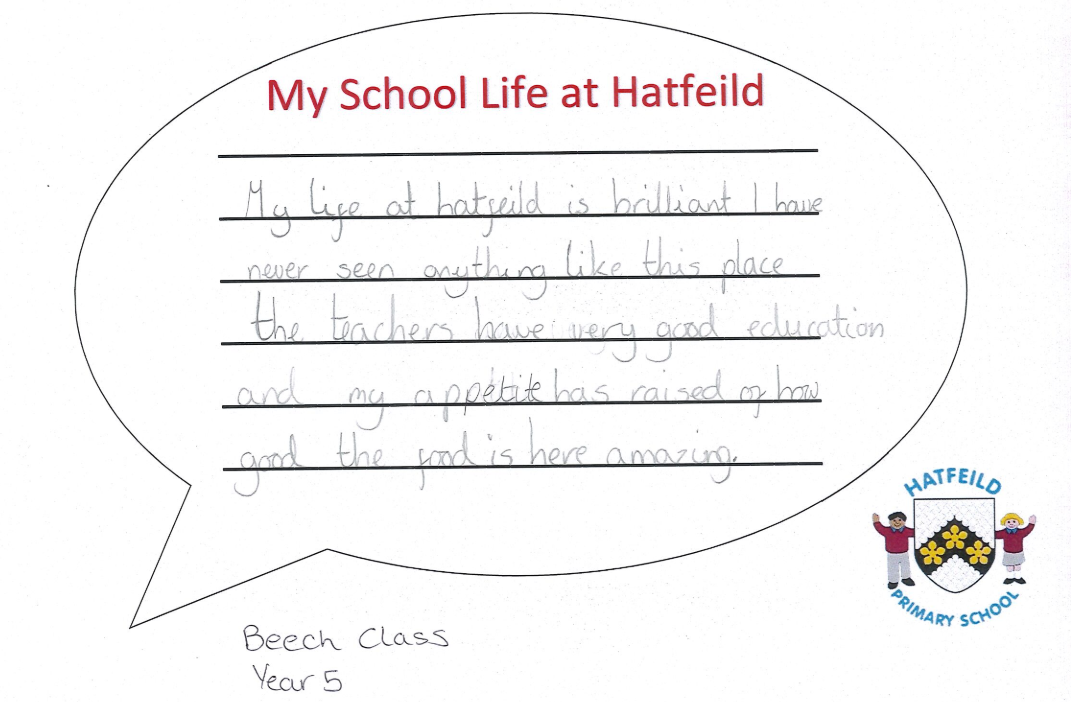 My School Life at Hatfeild
My life at hatfeild is brilliant I have
never seen anything like this place
the teachers have very good education
and my appetite has raised of how
good the food is here amazing.
HATFEILD
PRIMARY SCHOOL
Beech Class
Year 5